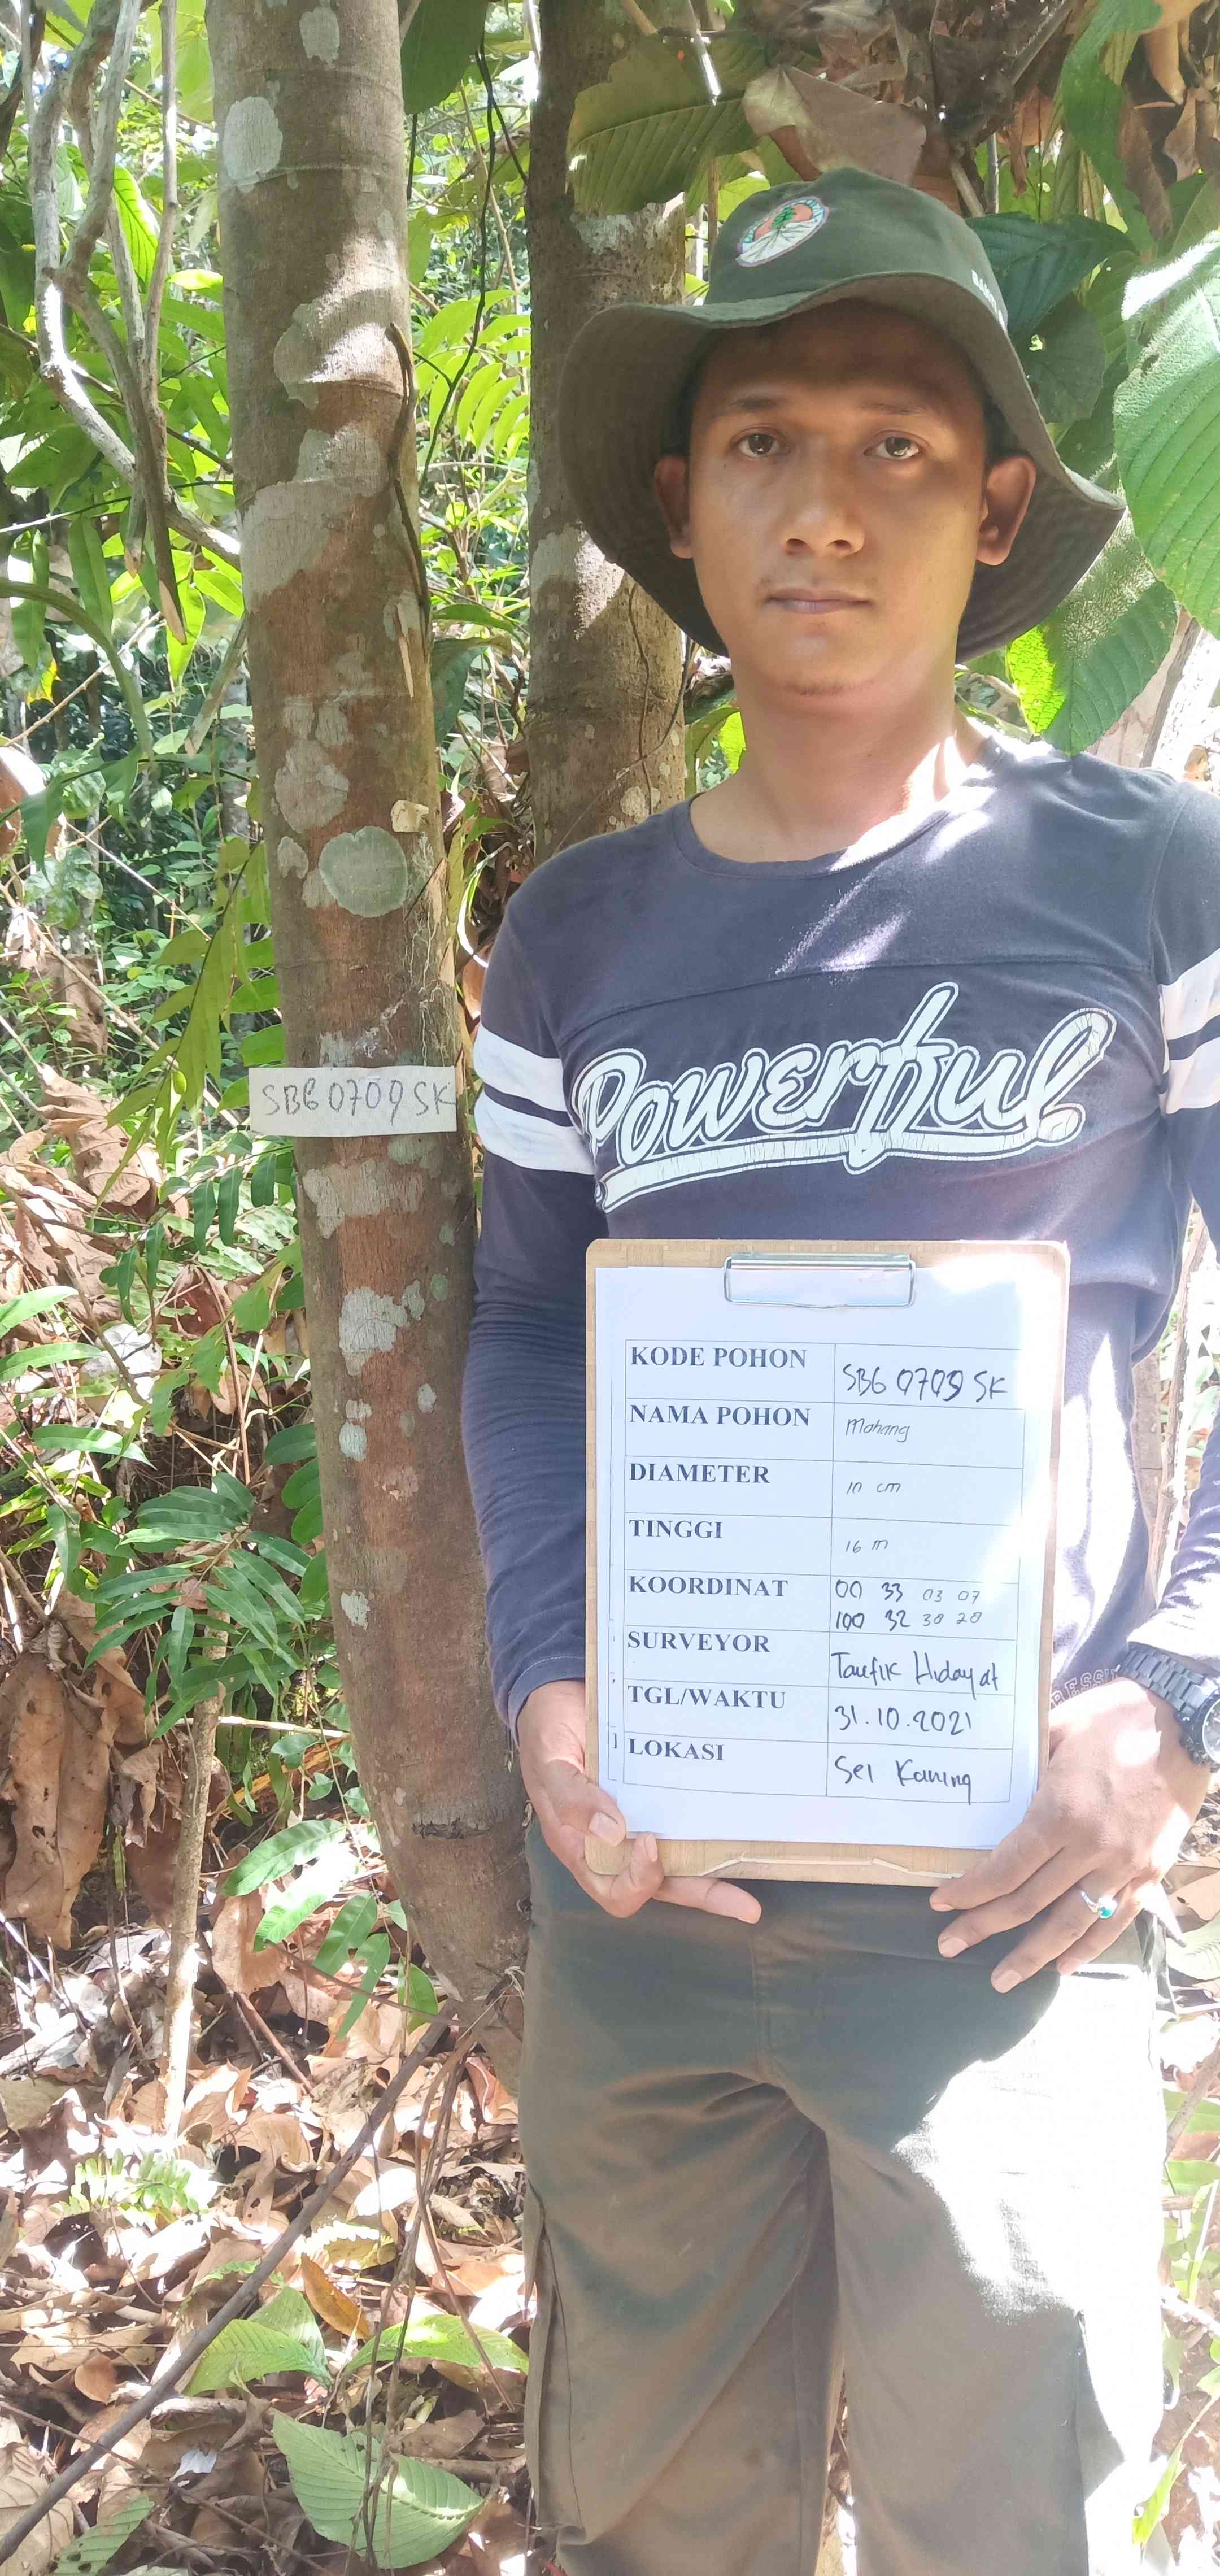 SBG 0709 SK
Powerful
KODE POHON SBG 0709 SK
NAMA POHON Mahang
DIAMETER 10 cm
TINGGI 16 m
KOORDINAT 00 33 03 07
100 32 30 20
SURVEYOR Taufik Hidayat
TGL/WAKTU 31.10.2021
LOKASI Sei Kaning